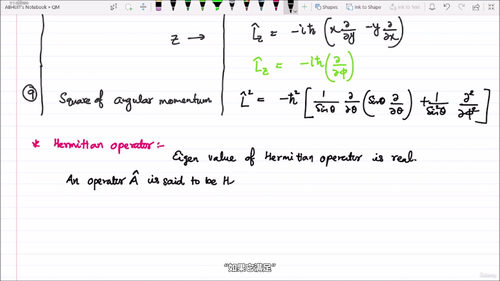 ABHIJIT's Notebook > QM
Shapes
Ink to Shape
Ink to Text
Z → L̂z = -iħ (x ∂/∂y - y ∂/∂x)
L̂z = -iħ (∂/∂φ)
⑨ Square of angular momentum L̂² = -ħ² [ 1/Sinθ ∂/∂θ (Sinθ ∂/∂θ) + 1/Sin²θ ∂²/∂φ² ]
* Hermitian operator:-
Eigen value of Hermitian operator is real.
An operator Â is said to be H
“如果它满足”